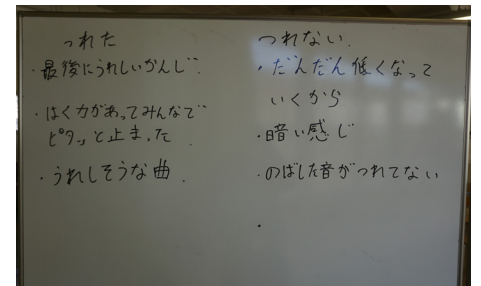 つれた
・最後にうれしいかんじ
・はく力があってみんなで
ピタッと止まった
・うれしそうな曲
つれない
・だんだん低くなって
いくから
・暗い感じ
・のばした音がつれてない
・